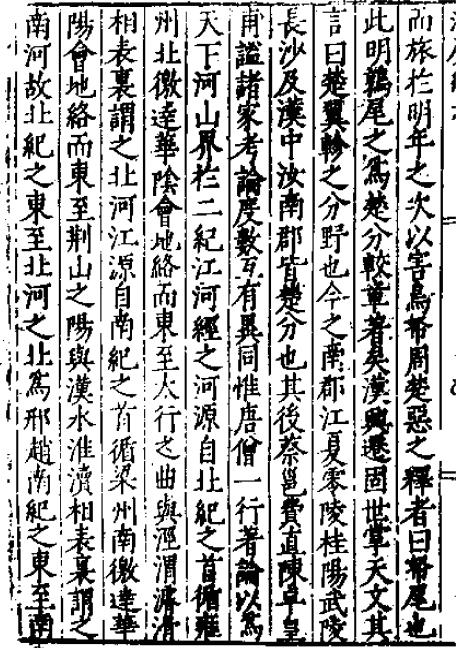 而旅於明年之次以害鳥帑周楚惡之釋者曰帑尾也
此明鶉尾之爲楚分較章著矣漢興遷固世掌天文其
言曰楚翼軫之分野也今之南郡江夏零陵桂陽武陵
長沙及漢中汝南郡皆楚分也其後蔡邕費直陳卓皇
甫謐諸家考論度數互有異同惟唐僧一行著論以爲
天下河山界於二紀江河經之河源自北紀之首循雍
州北徼達華陰會地絡而東至太行之曲與涇渭濟
相表裏謂之北河江源自南紀之首循梁州南徼達華
陽會地絡而東至荆山之陽與漢水淮瀆相表裏謂之
南河故北紀之東至北河之北爲邢趙南紀之東至南